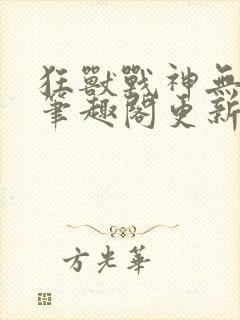 狂獸戰神無
筆趣閣更新
方光華